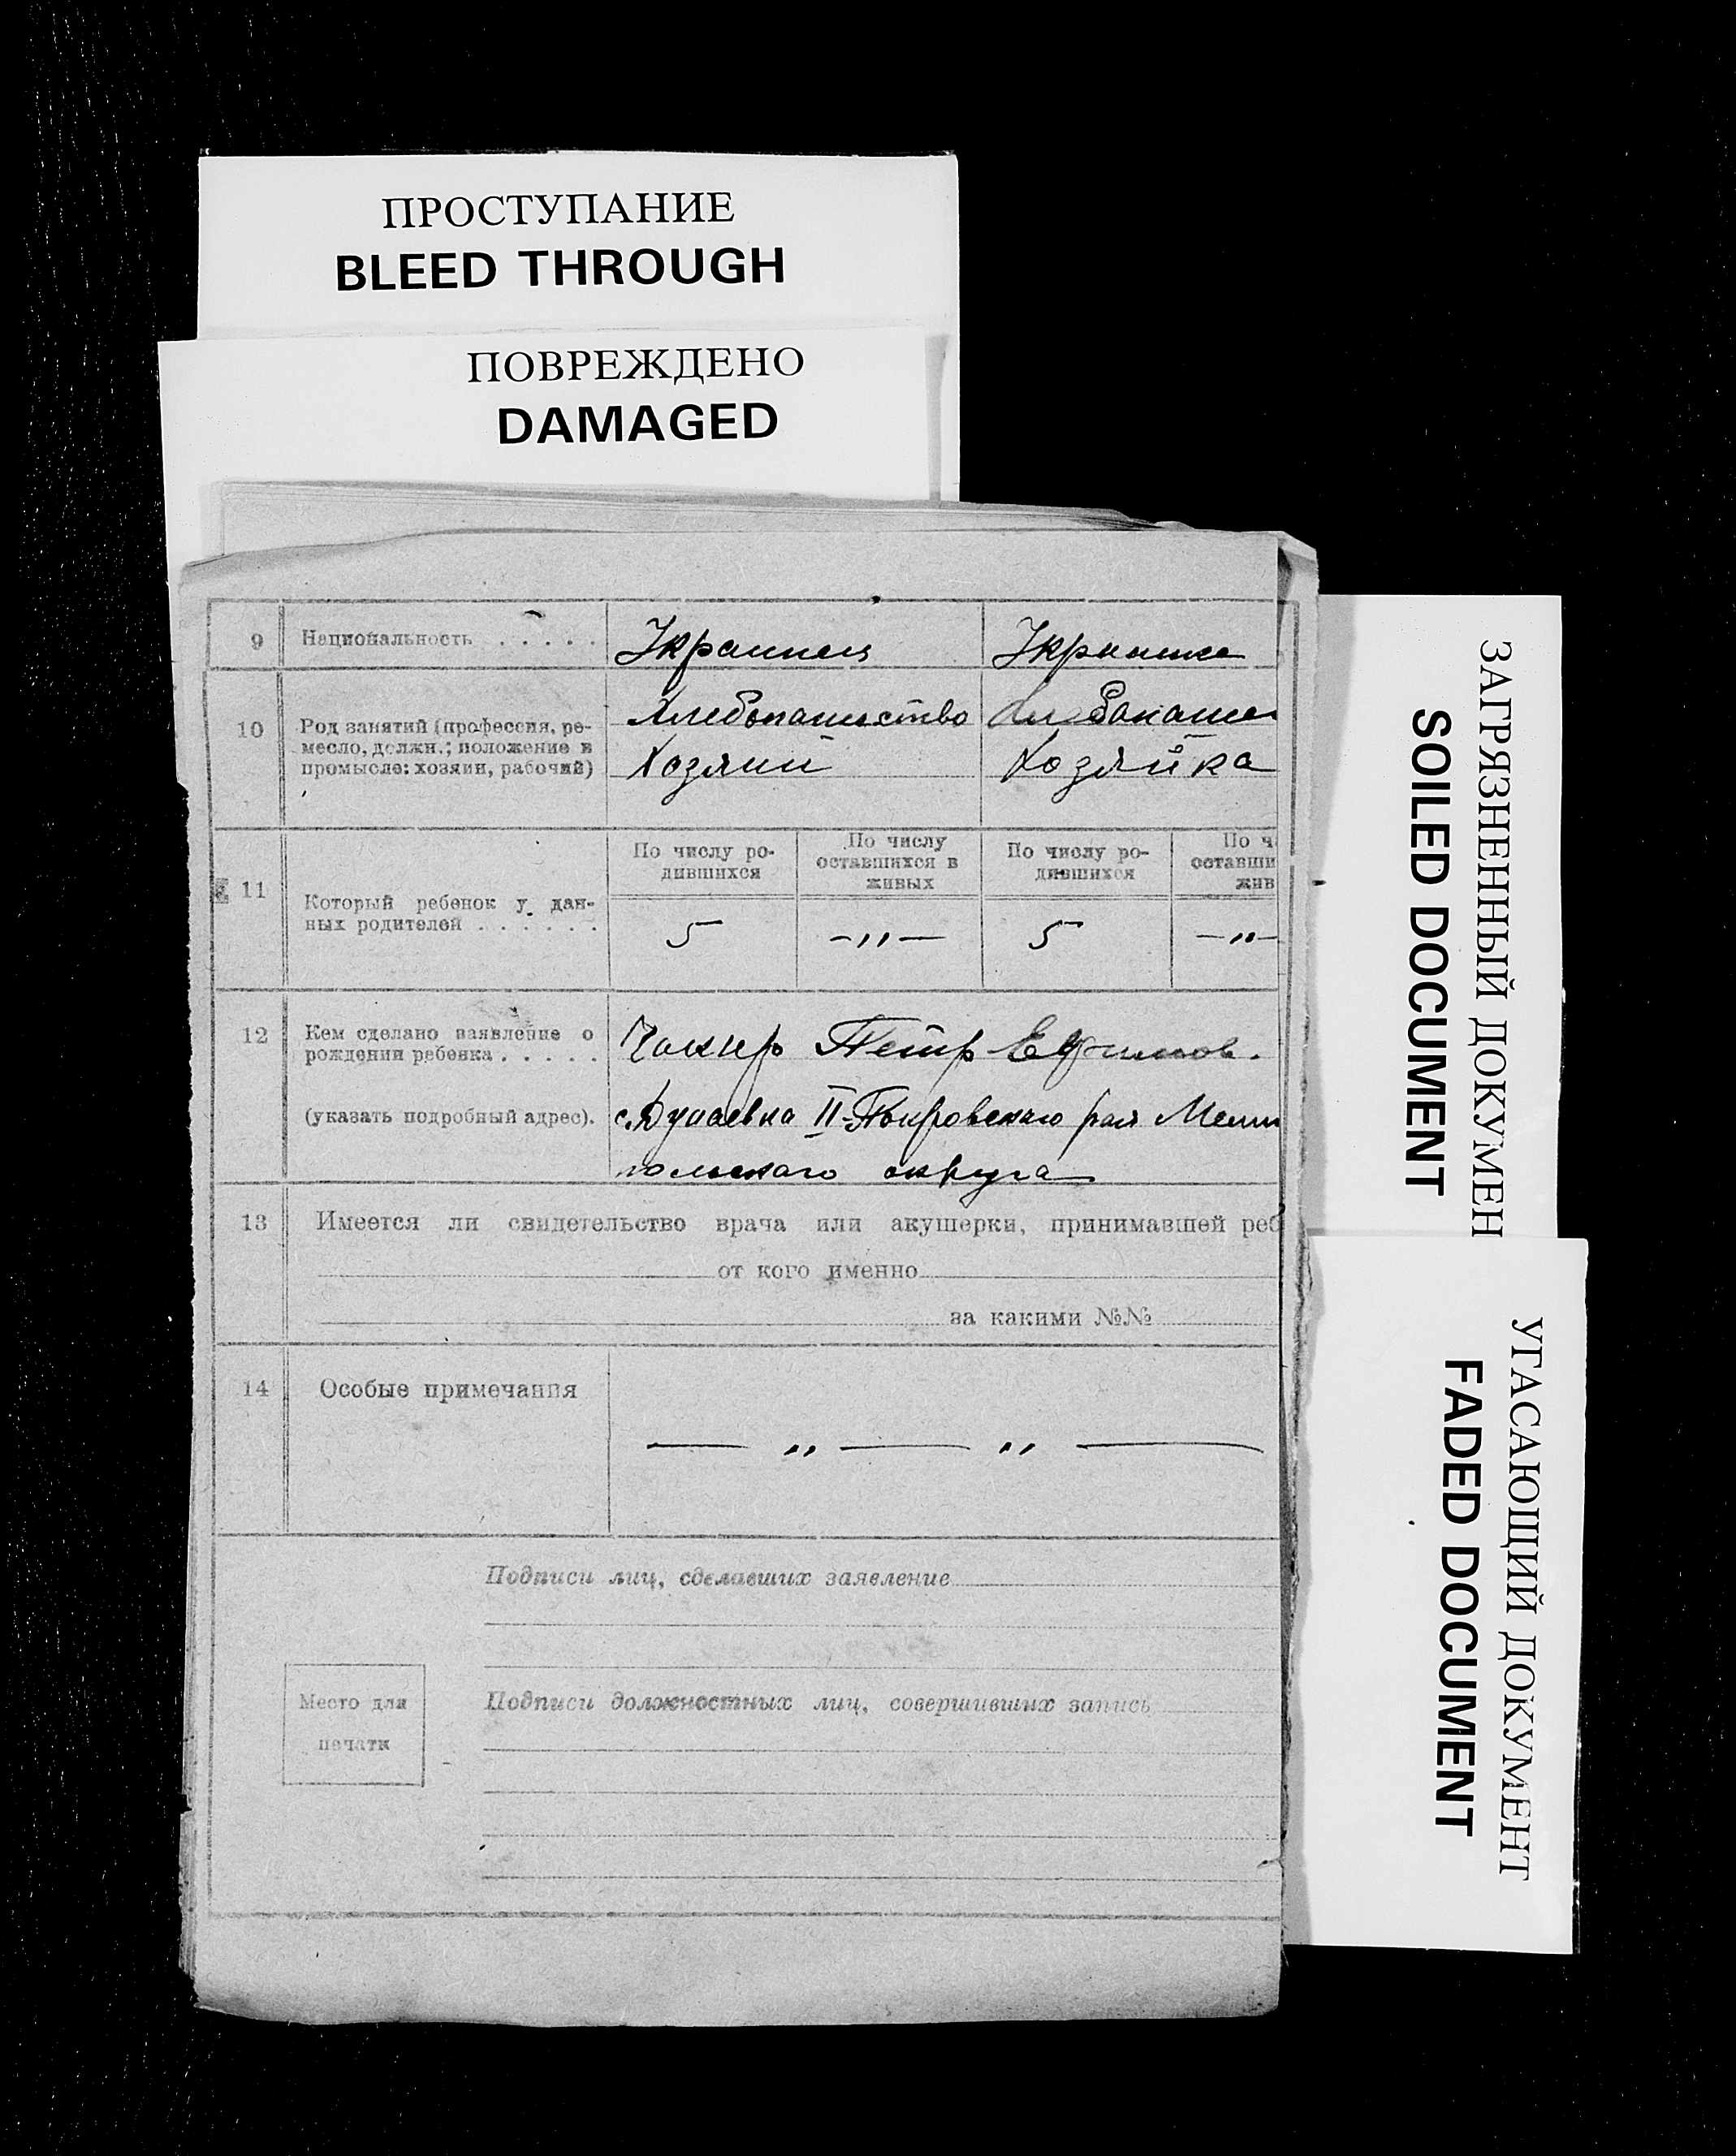 ПРОСТУПАНИЕ
BLEED THROUGH
ПОВРЕЖДЕНО
DAMAGED
9 Национальность . . . . . Украинец Украинка
10 Род занятий (профессия, ре-
месло, должн.; положение в
промысле: хозяин, рабочий)
Хлебопашество
Хозяин Хозяйка
11 Который ребенок у дан-
ных родителей . . . . . .
По числу ро-
дившихся
По числу
оставшихся в
живых
По числу ро-
дившихся
По ч
оставши
жив
5 —"— 5 —"—
12 Кем сделано заявление о
рождении ребенка . . . . .
(указать подробный адрес).
Чакир Петр Ефимов.
II-Покровскаго рая Мели
польскаго округа
13 Имеется ли свидетельство врача или акушерки, принимавшей реб
от кого именно
за какими №№
14 Особые примечания
— " — " —
Подписи лиц, сделавших заявление
Место для
печати
Подписи должностных лиц, совершивших запись
ЗАГРЯЗНЕННЫЙ ДОКУМЕН
SOILED DOCUMENT
УГАСАЮЩИЙ ДОКУМЕНТ
FADED DOCUMENT